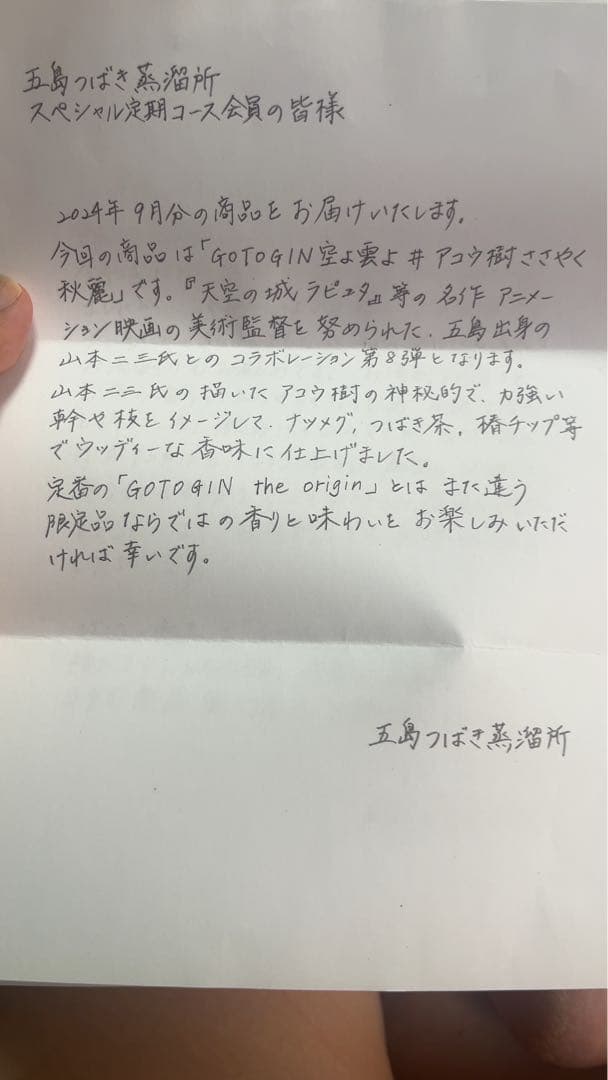 五島つばき蒸溜所
スペシャル定期コース会員の皆様
2024年9月分の商品をお届けいたします。
今回の商品は「GOTOGIN空よ雲よ#アコウ樹ささやく
秋麗」です。『天空の城ラピュタ』等の名作アニメー
ション映画の美術監督を努められた、五島出身の
山本二三氏とのコラボレーション第8弾となります。
山本二三氏の描いたアコウ樹の神秘的で、力強い
幹や枝をイメージして、ナツメグ、つばき茶、椿チップ等
でウッディーな香味に仕上げました。
定番の「GOTOGIN the origin」とはまた違う
限定品ならではの香りと味わいをお楽しみいただ
ければ幸いです。
五島つばき蒸溜所